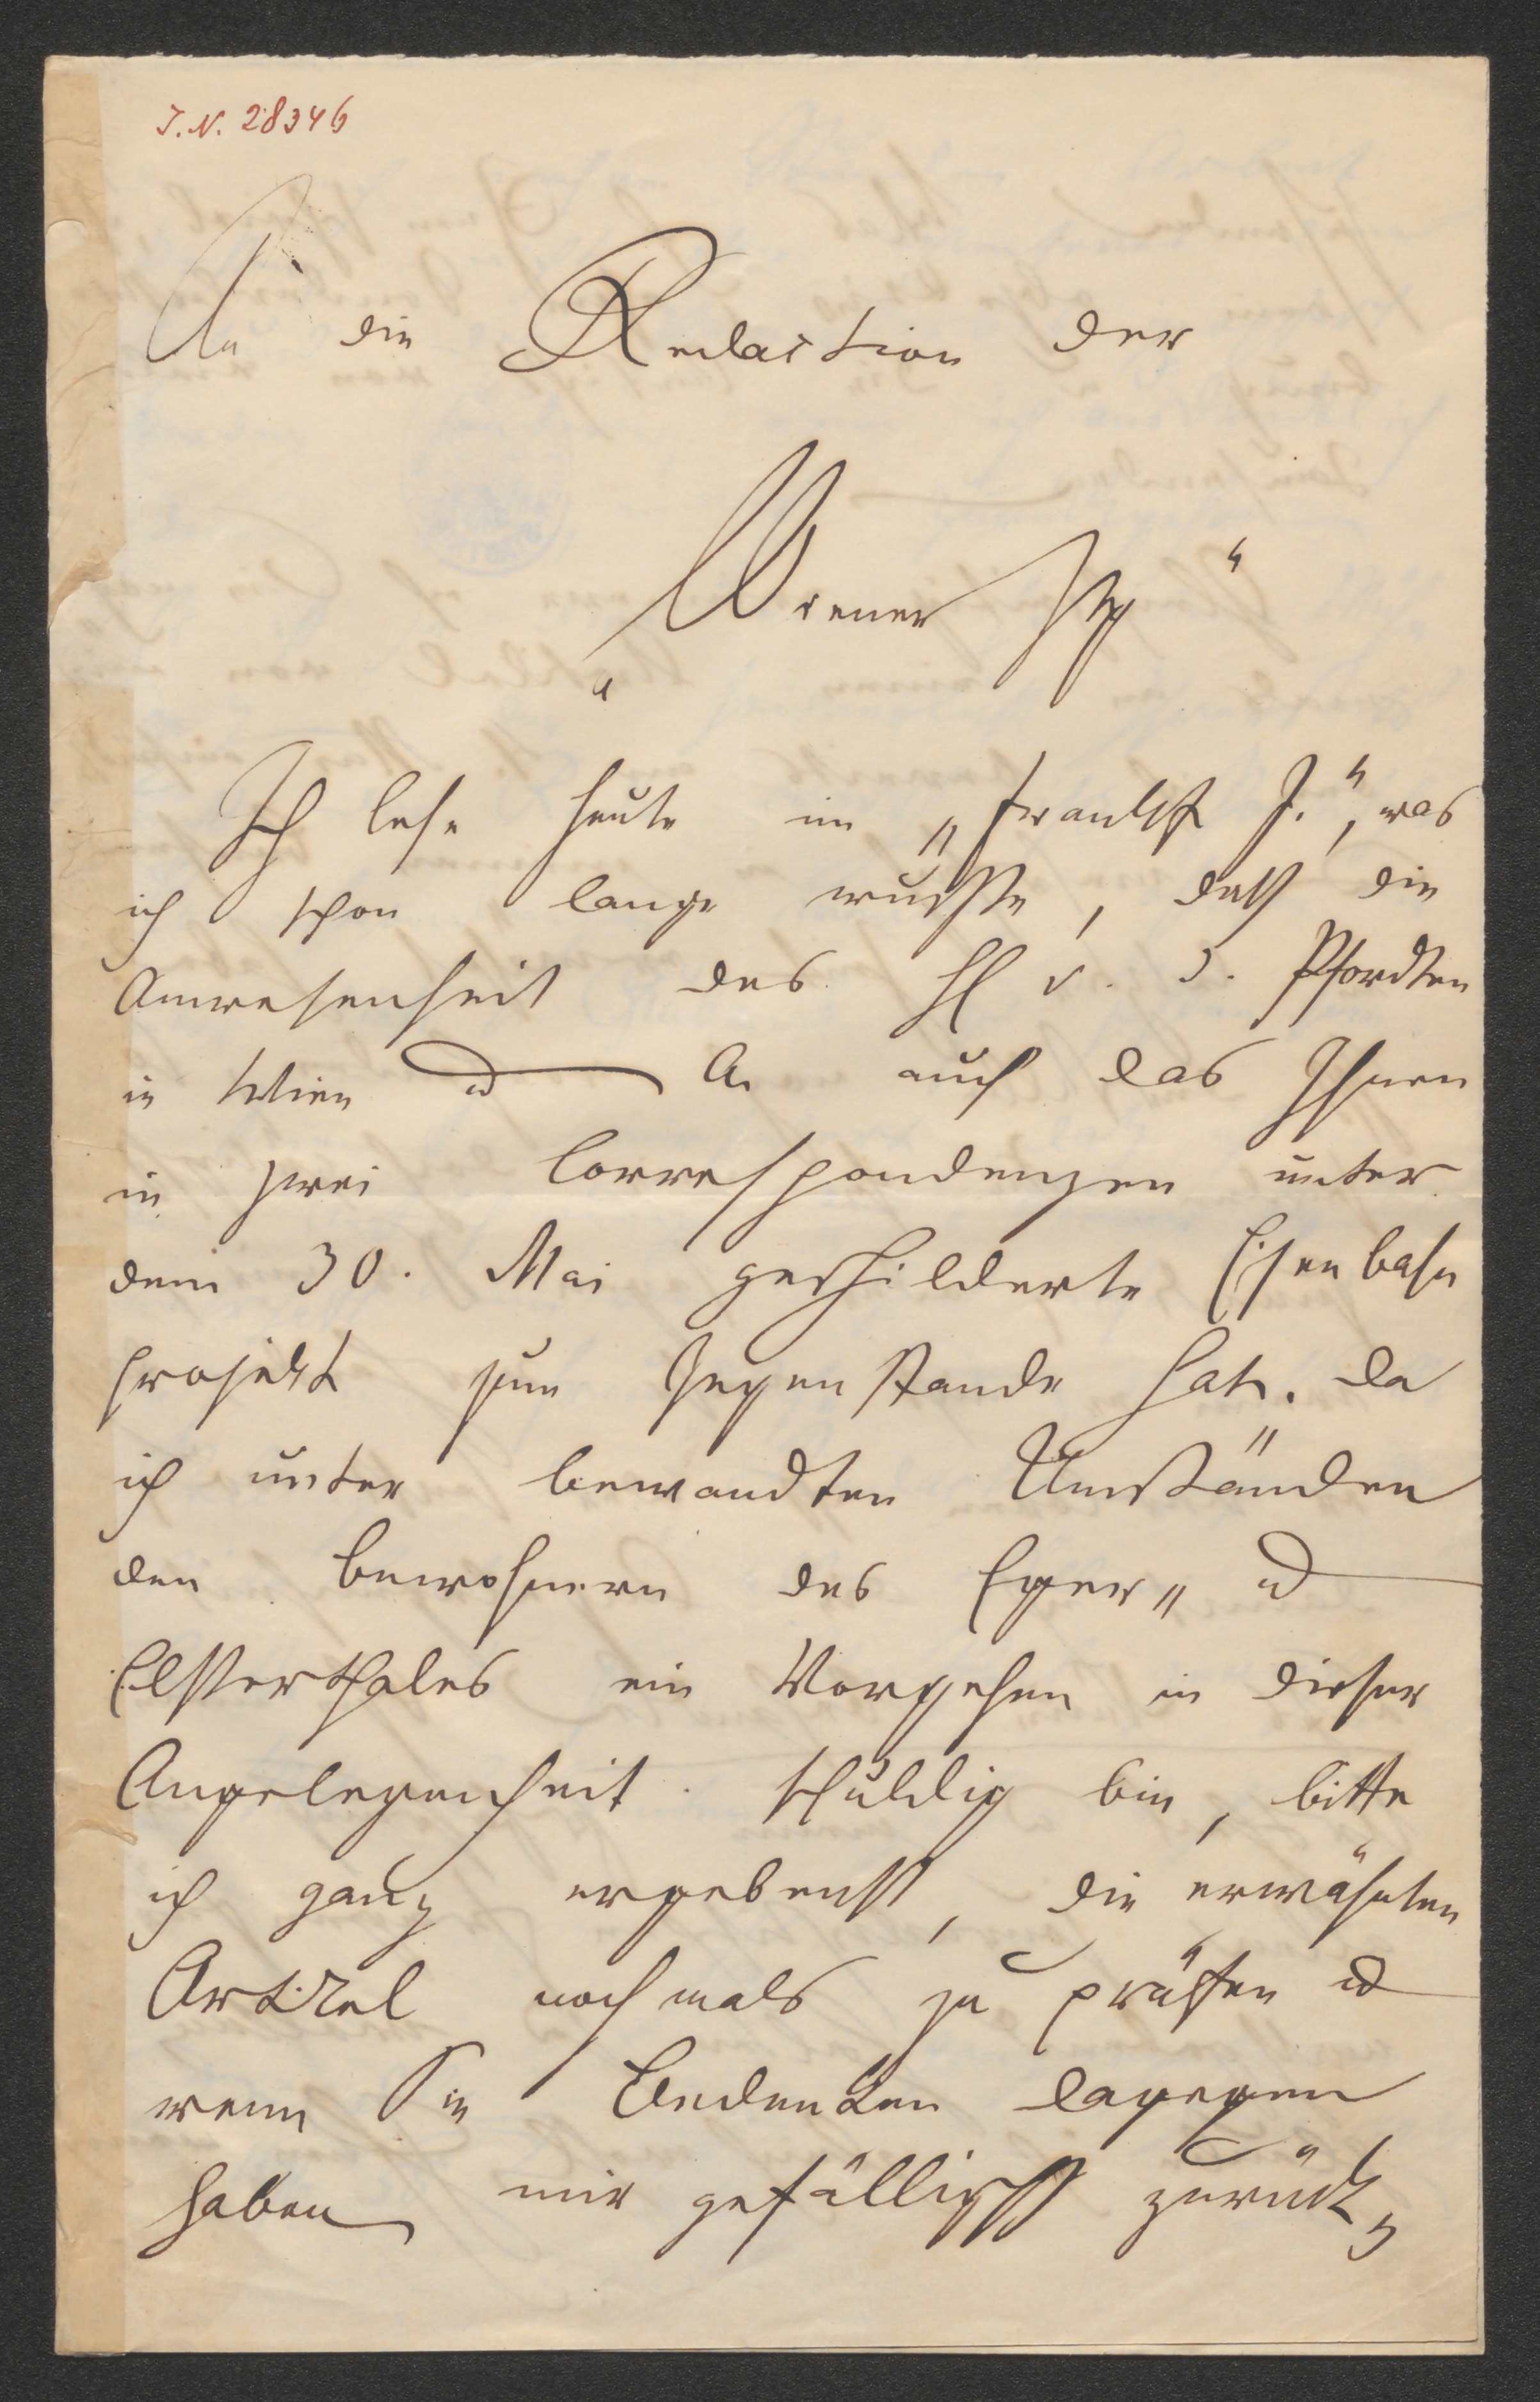 I.N. 28346
An die Redaction der
„Wiener Ztg“
Ich lese heute im „Frankft J.“, was
ich schon lange wußte, daß die
Anwesenheit des H v. d. Pfordten
in Wien u A. auch das Ihnen
in zwei Correspondenzen unter
dem 30. Mai geschilderte Eisenbahn
projekt zum Gegenstande hat. Da
ich unter bewandten Umständen
den Bewohnern des Eger- u
Elsterthales ein Vorgehen in dieser
Angelegenheit schuldig bin, bitte
ich ganz ergebenst, die erwähnten
Artikel nochmals zu prüfen u
wenn Sie Bedenken dagegen
haben mir gefälligst zurück,